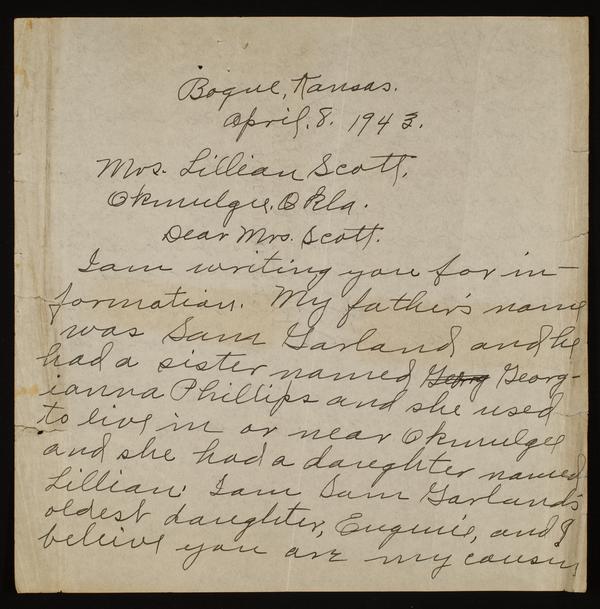 Bogue, Kansas.
April. 8. 1943.
Mrs. Lillian Scott.
Okmulgee, Okla.
Dear Mrs. Scott.
I am writing you for in-
formation. My father's name
was Sam Garland and he
had a sister named Georg Georg-
ianna Phillips and she used
to live in or near Okmulgee
and she had a daughter named
Lillian. I am Sam Garland's
oldest daughter, Eugenie, and I
beleive you are my cousin